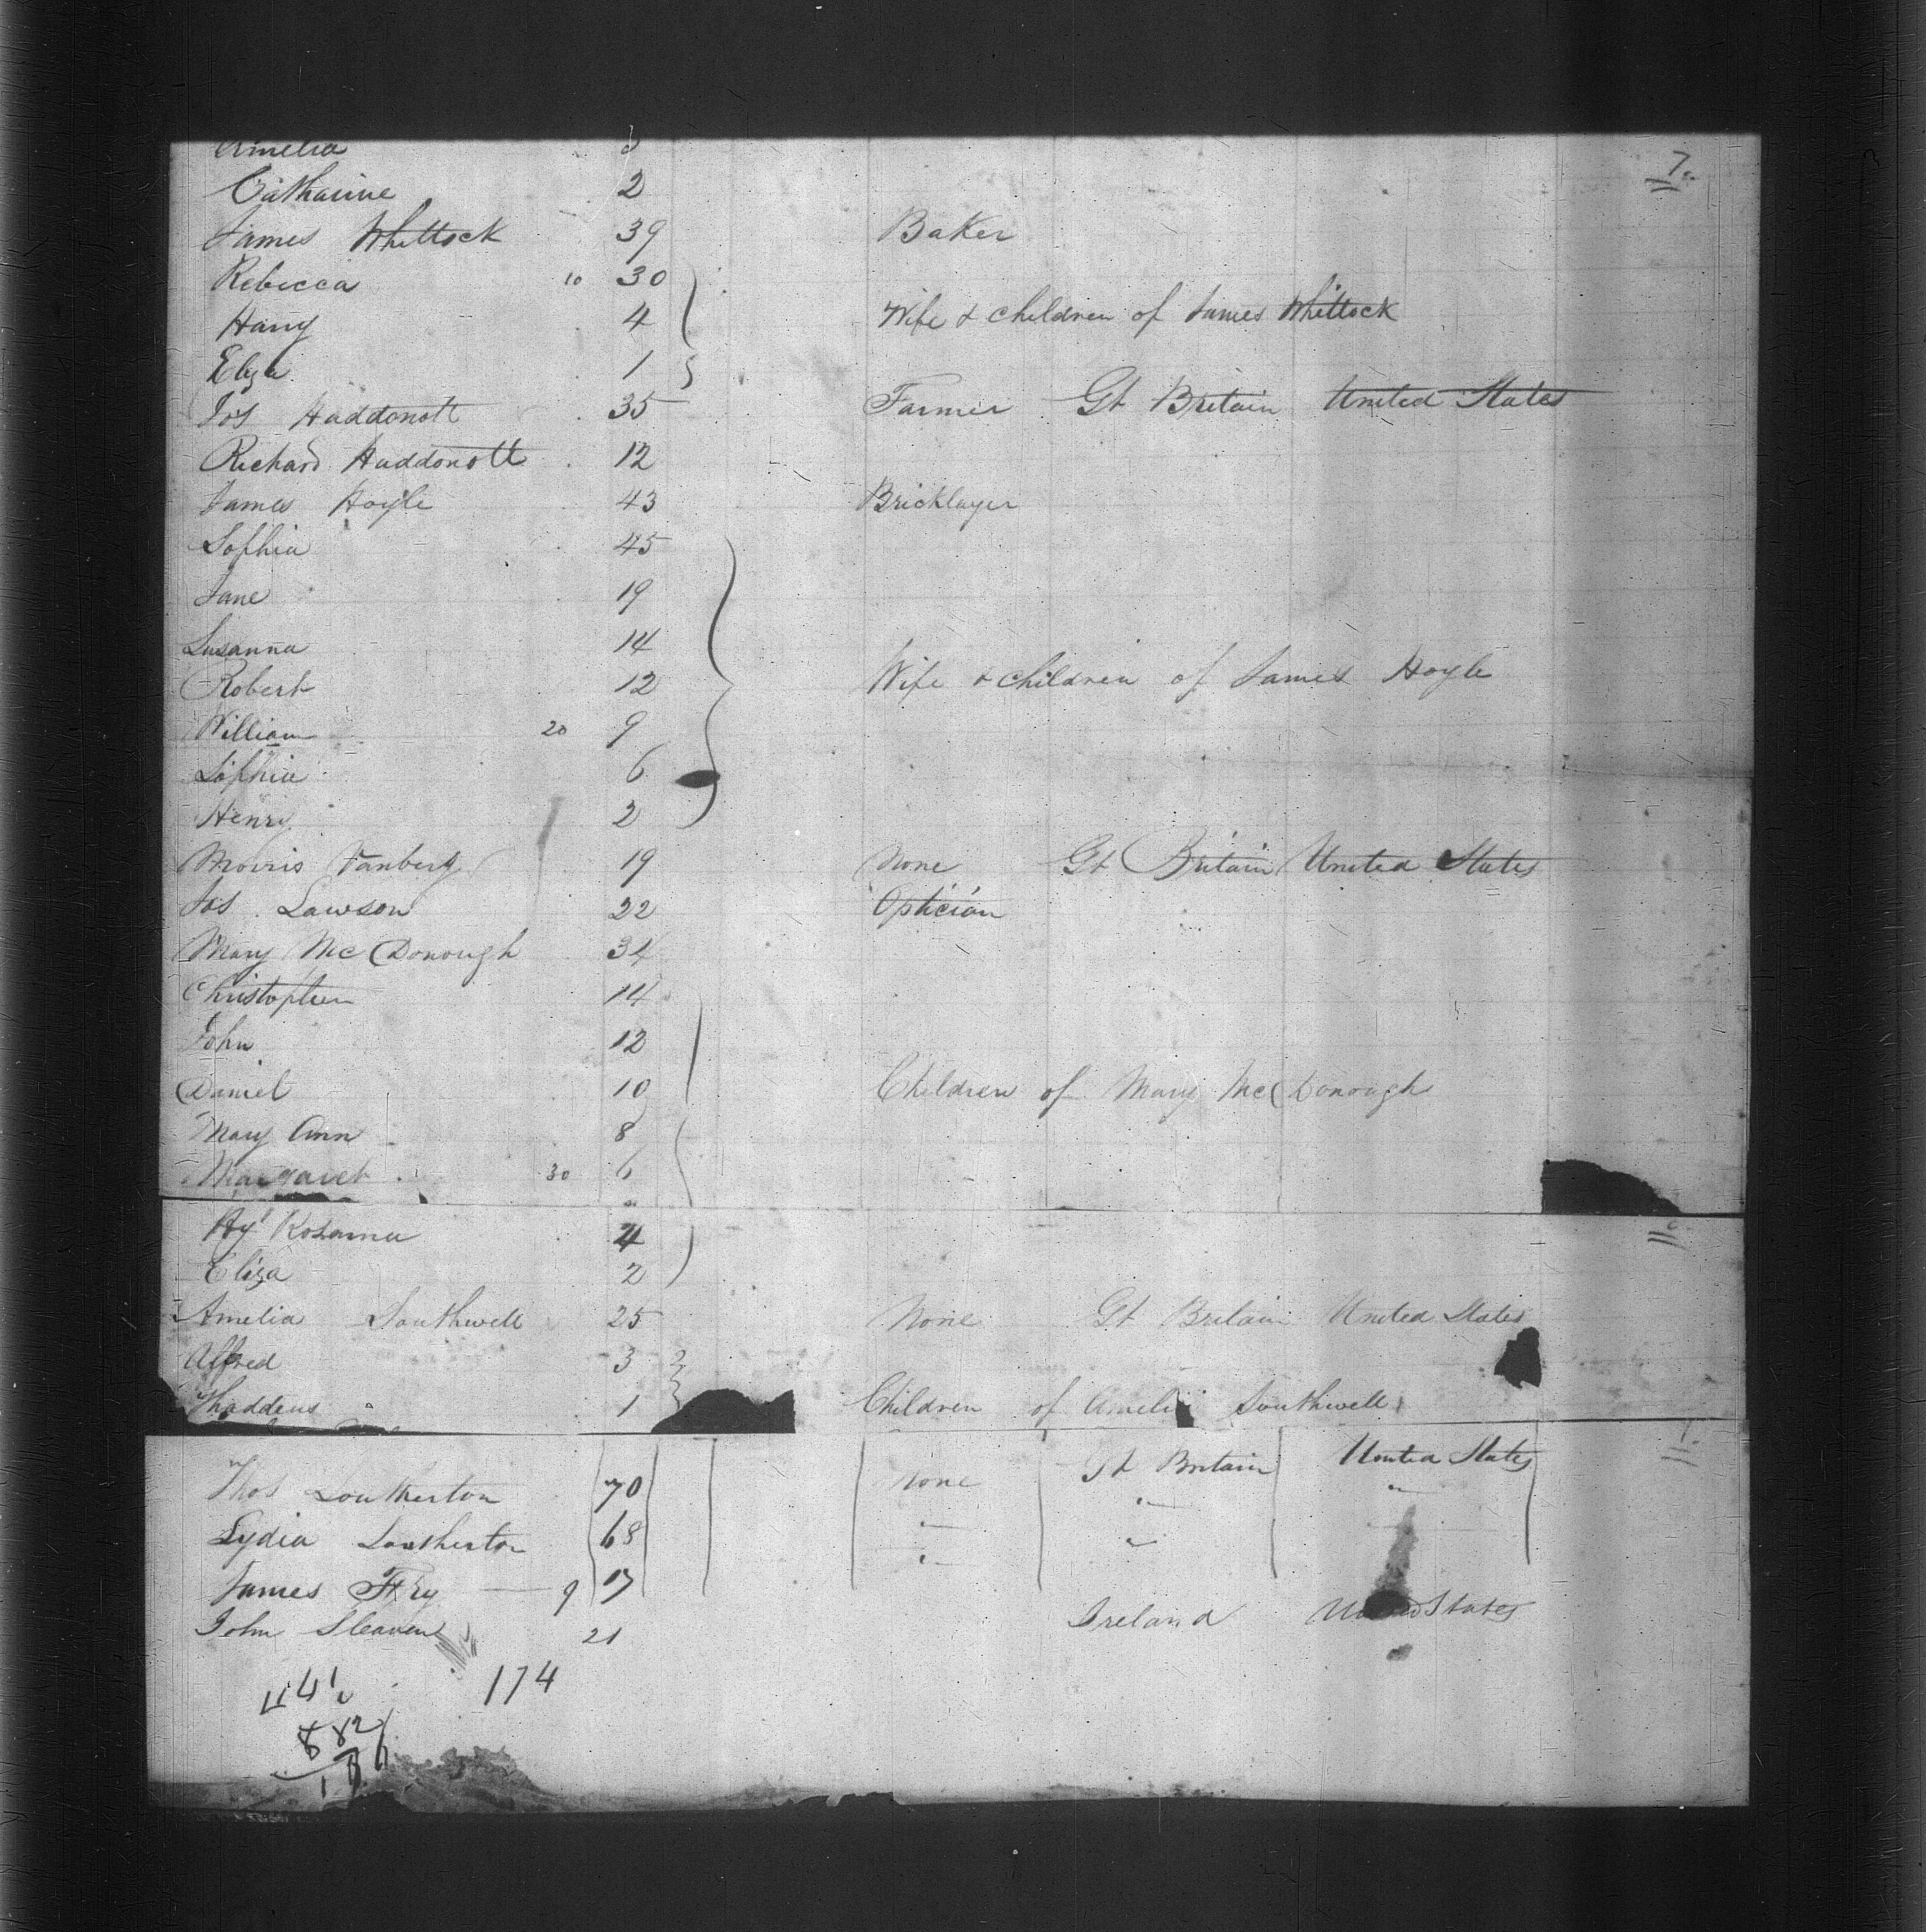 Amelia 3 7.
Catharine 2
James Whittock 39 Baker
Rebecca 10 30
Harry 4 Wife & children of James Whittock
Eliza 1
Jos Haddonott 35 Farmer Gt Britain United States
Richard Haddonott 12
James Hoyle 43 Bricklayer
Sophia 45
Jane 19
Susanna 14
Robert 12 Wife & children of James Hoyle
William 20 9
Sophia 6
Henry 2
Morris Fanberg 19 None Gt Britain United States
Jos Lawson 22 Optician
Mary McDonough 34
Christopher 14
John 12
Daniel 10 Children of Mary McDonough
Mary Ann 8
Margaret 30 6
Rosanna 4
Eliza 2
Amelia Southwell 25 None Gt Britain United States
Alfred 3
Thaddeus 1 Children of Amelia Southwell
Thos Loutherton 70 None Gt Britain United States
Lydia Loutherton 68 " " "
James Fry 9 17 " "
John Sleaven 21 Ireland United States
174